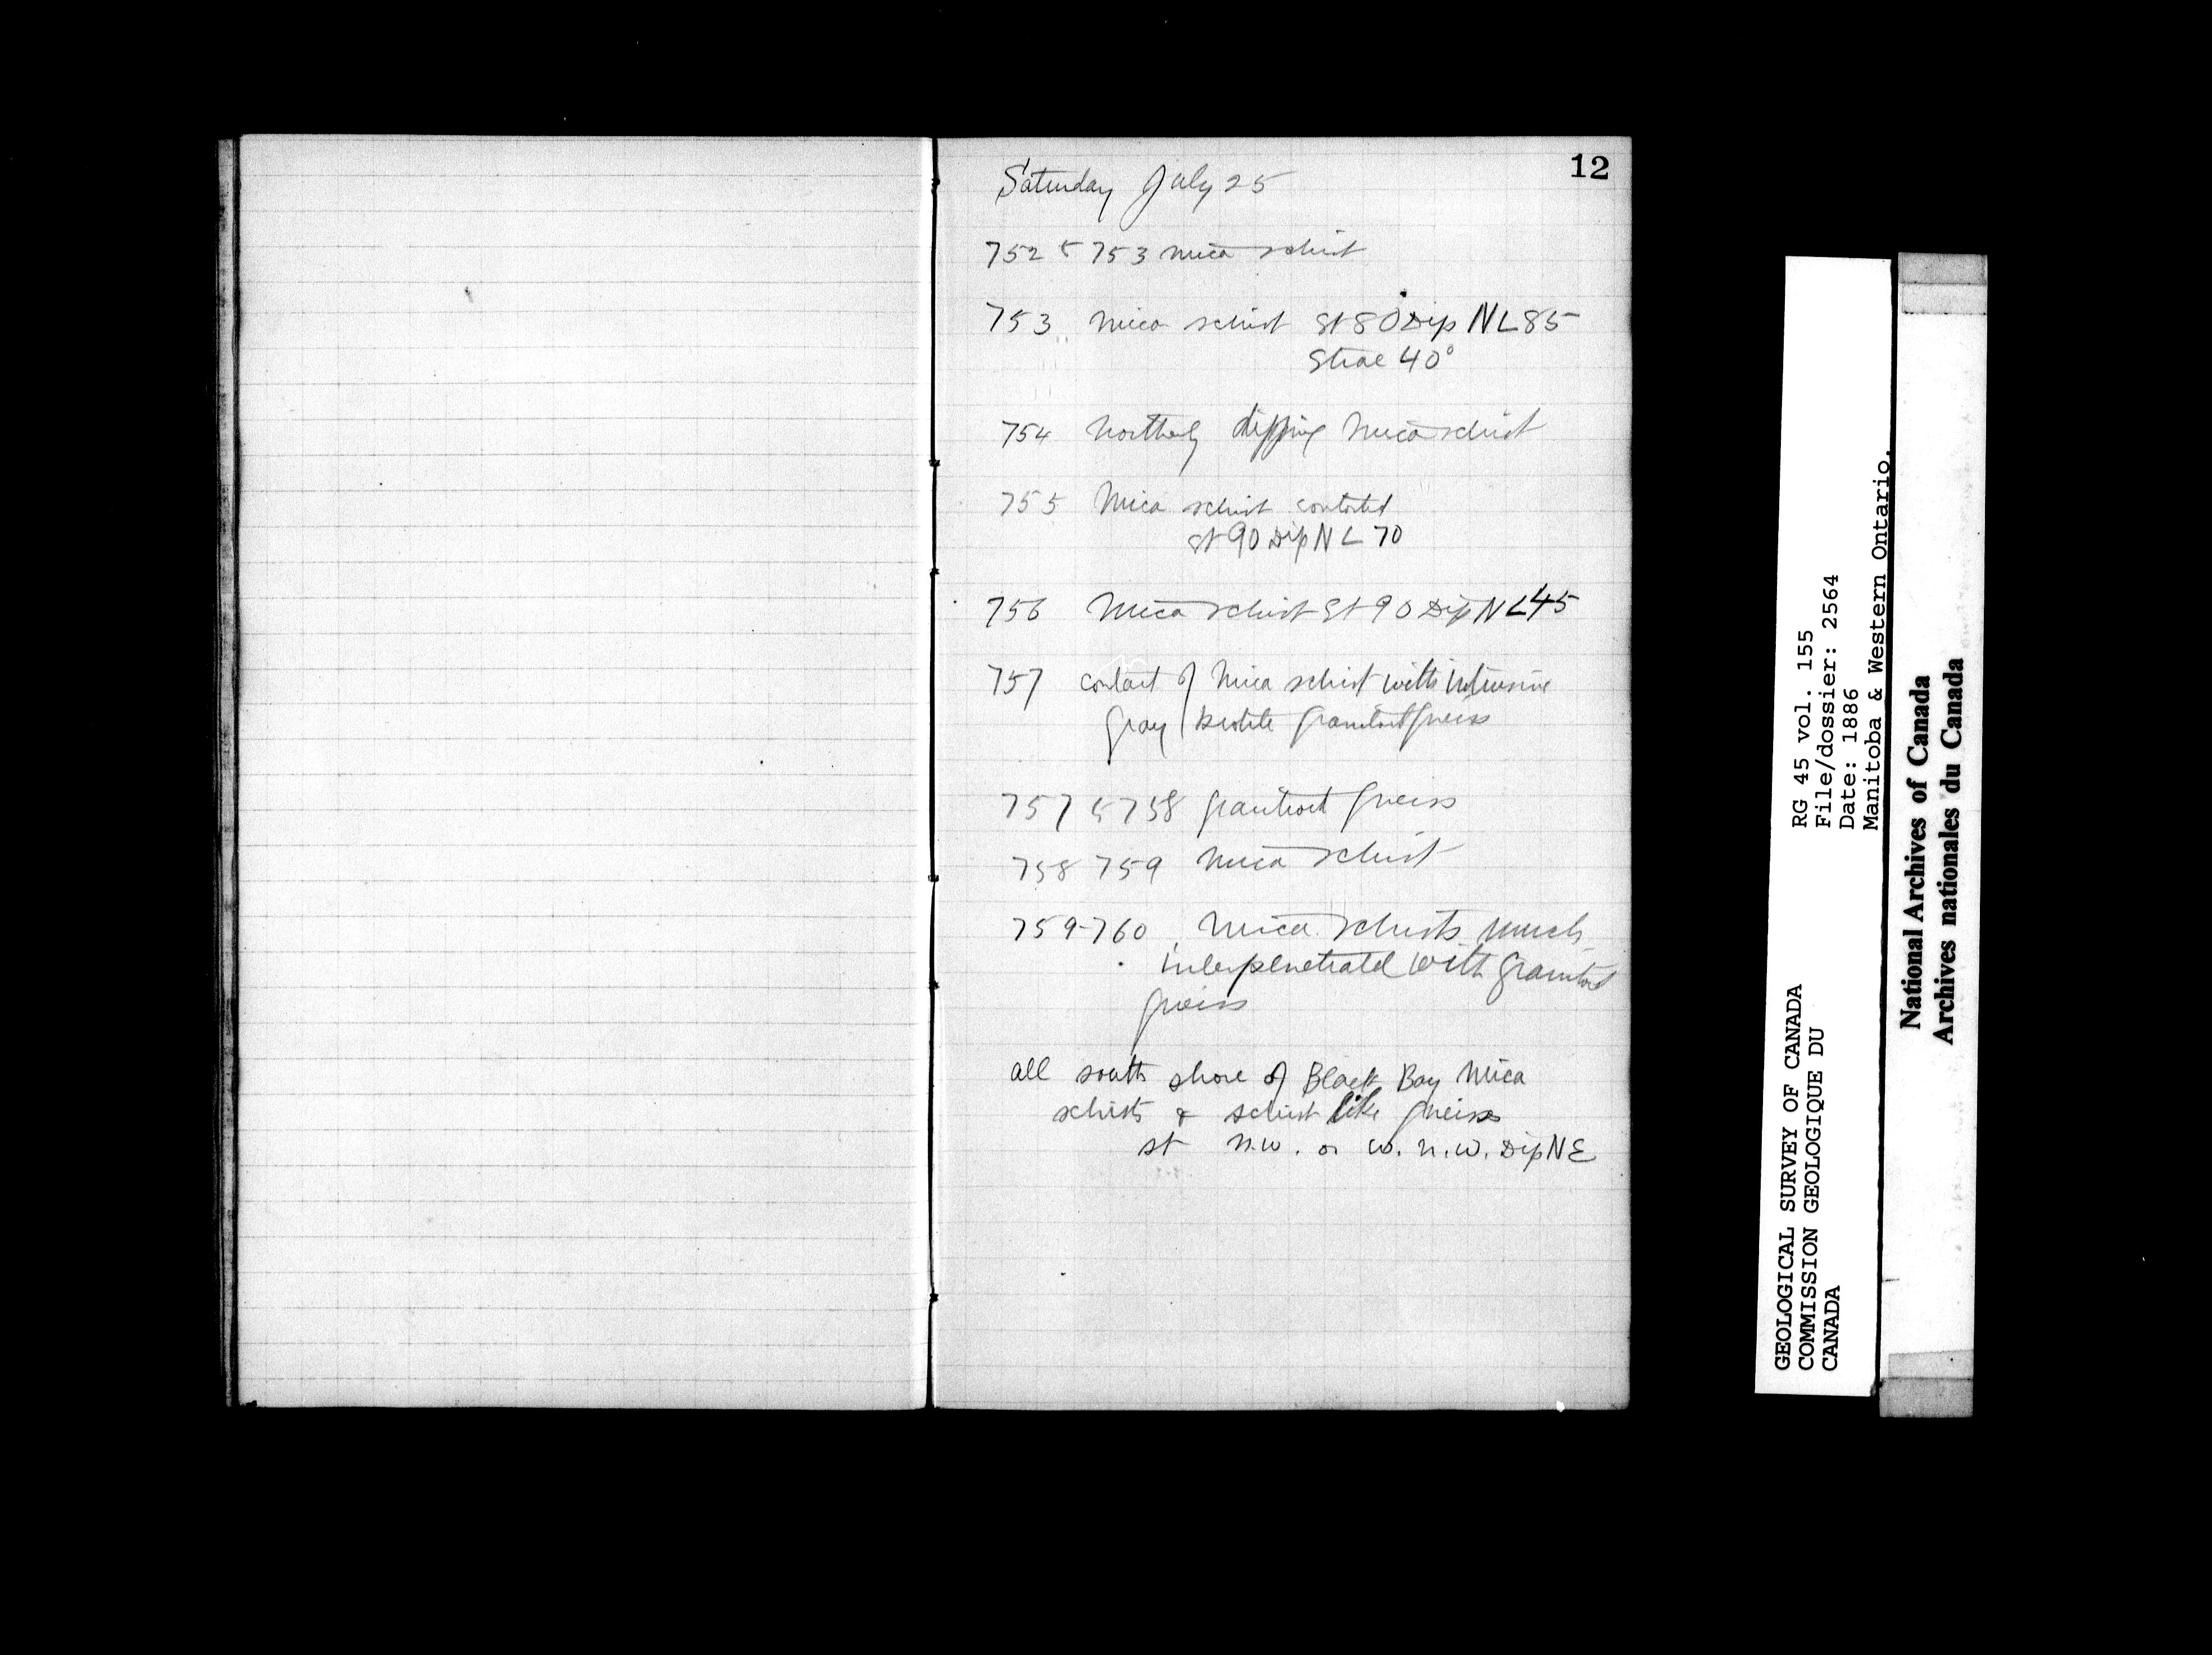 12
Saturday July 25
752 & 753 mica schist
753 mica schist St 80 Dip N L 85
Striae 40°
754 Northerly dipping mica schist
755 Mica schist contorted
St 90 Dip N L 70
756 Mica schist St 90 Dip N L 45
757 contact of mica schist with intrusive
gray biotite granitoid gneiss
757 & 758 granitoid gneiss
758 759 mica schist
759-760 Mica schists much
interpenetrated with granitoid
gneiss
all south shore of Black Bay mica
schists & schist like gneiss
st n.w. or w.n.w. Dip NE
GEOLOGICAL SURVEY OF CANADA
COMMISSION GEOLOGIQUE DU
CANADA
RG 45 vol. 155
File/dossier: 2564
Date: 1886
Manitoba & Western Ontario.
National Archives of Canada
Archives nationales du Canada